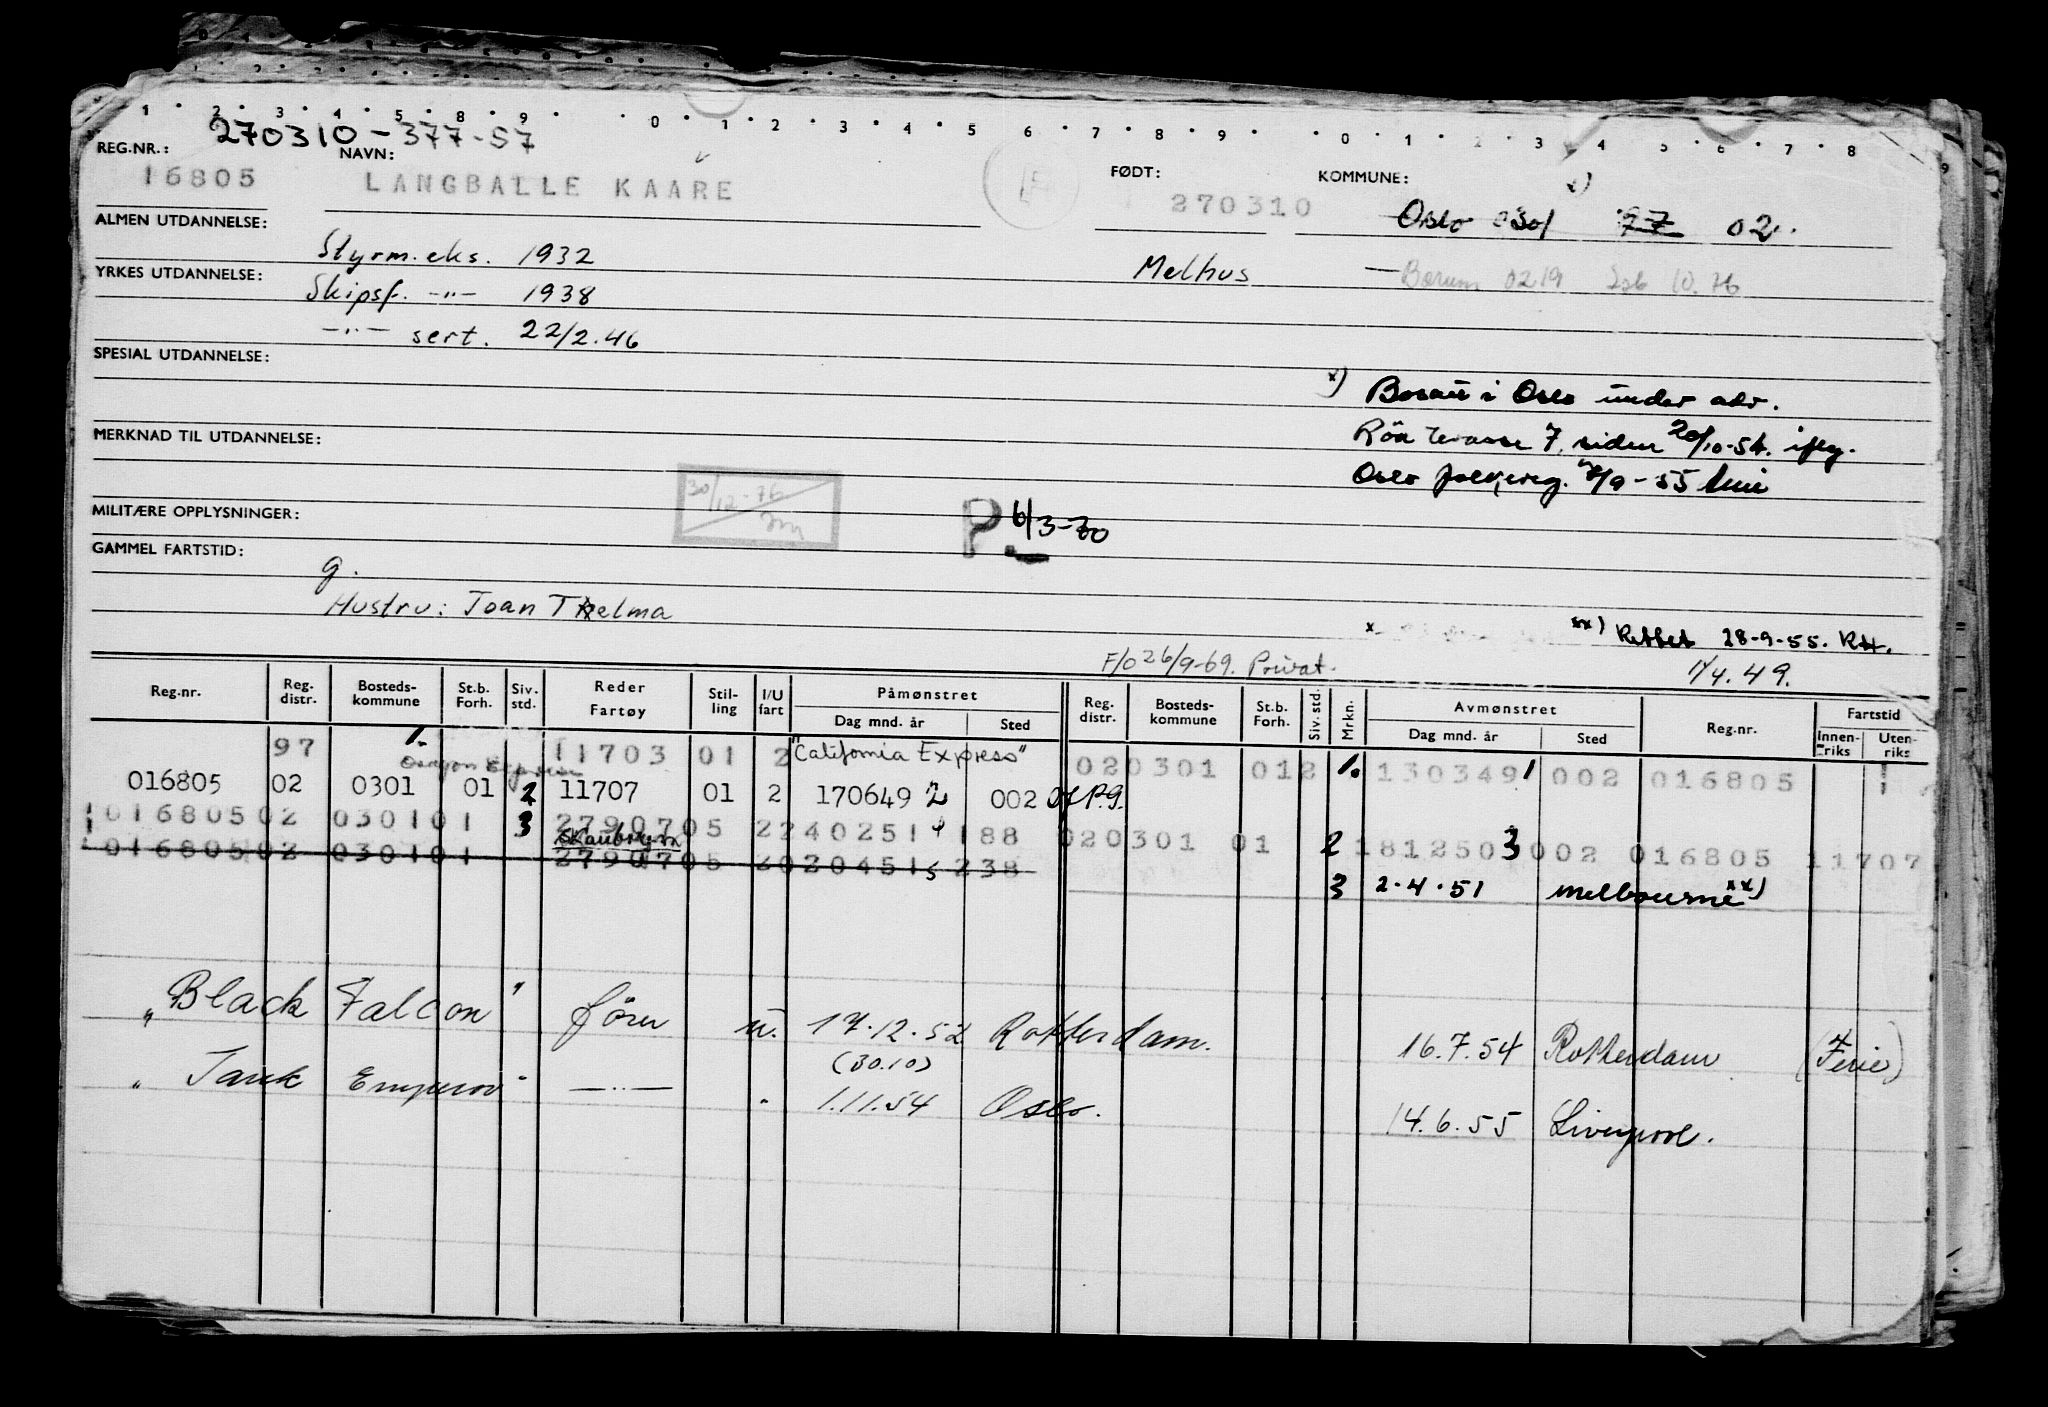 1 2 3 4 5 8 9 0 1 2 3 4 5 6 7 8 9 0 1 2 3 4 5 6 7 8 9
270310-377-57
REG.NR.: NAVN: FØDT: KOMMUNE:
16805 LANGBALLE KAARE 270310 Oslo 0301 77 02
ALMEN UTDANNELSE:
Styrm.eks. 1932 Melhus Bærum 0219 10.76
YRKES UTDANNELSE:
Skipsf. -"- 1938
-"- sert. 22/2.46
SPESIAL UTDANNELSE:
x) Bosatt i Oslo under adr.
MERKNAD TIL UTDANNELSE:
Röa terasse 7, siden 20/10-54. iflg.
Oslo folkereg. /9-55
30/12-76
MILITÆRE OPPLYSNINGER:
P. 6/3-70
GAMMEL FARTSTID:
g.
Hustru: Joan Thelma
xx) Rettet 28-9-55. RH.
F/O 26/9-69. Privat. 1/4.49.
Reg.nr. Reg. distr. Bosteds- kommune St.b. Forh. Siv. std. Reder Fartøy Stil- ling I/U fart Påmønstret Dag mnd. år Sted Reg. distr. Bosteds- kommune St.b. Forh. Siv. std. Mrkn. Avmønstret Dag mnd. år Sted Reg.nr. Fartstid Innen- riks Uten- riks
97 1. 11703 01 2 "California Express" 020301 012 1. 130349 1 002 016805
Oregon Express
016805 02 0301 01 2 11707 01 2 170649 2 002
016805 02 0301 01 3 27907 05 2 240251 4 188 020301 01 2 181250 3 002 016805 11707
Skaubryn
016805 02 0301 01 27907 05 2 020451 5 238
3 2.4.51 Melbourne xx)
"Black Falcon" förer u. 17.12.52 Rotterdam. 16.7.54 Rotterdam (Ferie)
(30.10)
"Tank Emperor" -"- " 1.11.54 Oslo. 14.6.55 Liverpool.